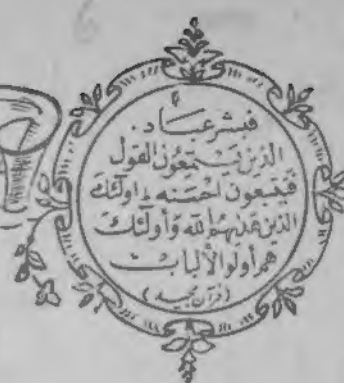 فبشر عباد.
الذين يستمعون القول
فيتبعون احسنه اولئك
الذين هدىهم الله وأولئك
هم أولو الألباب
(قرآن مجيد)